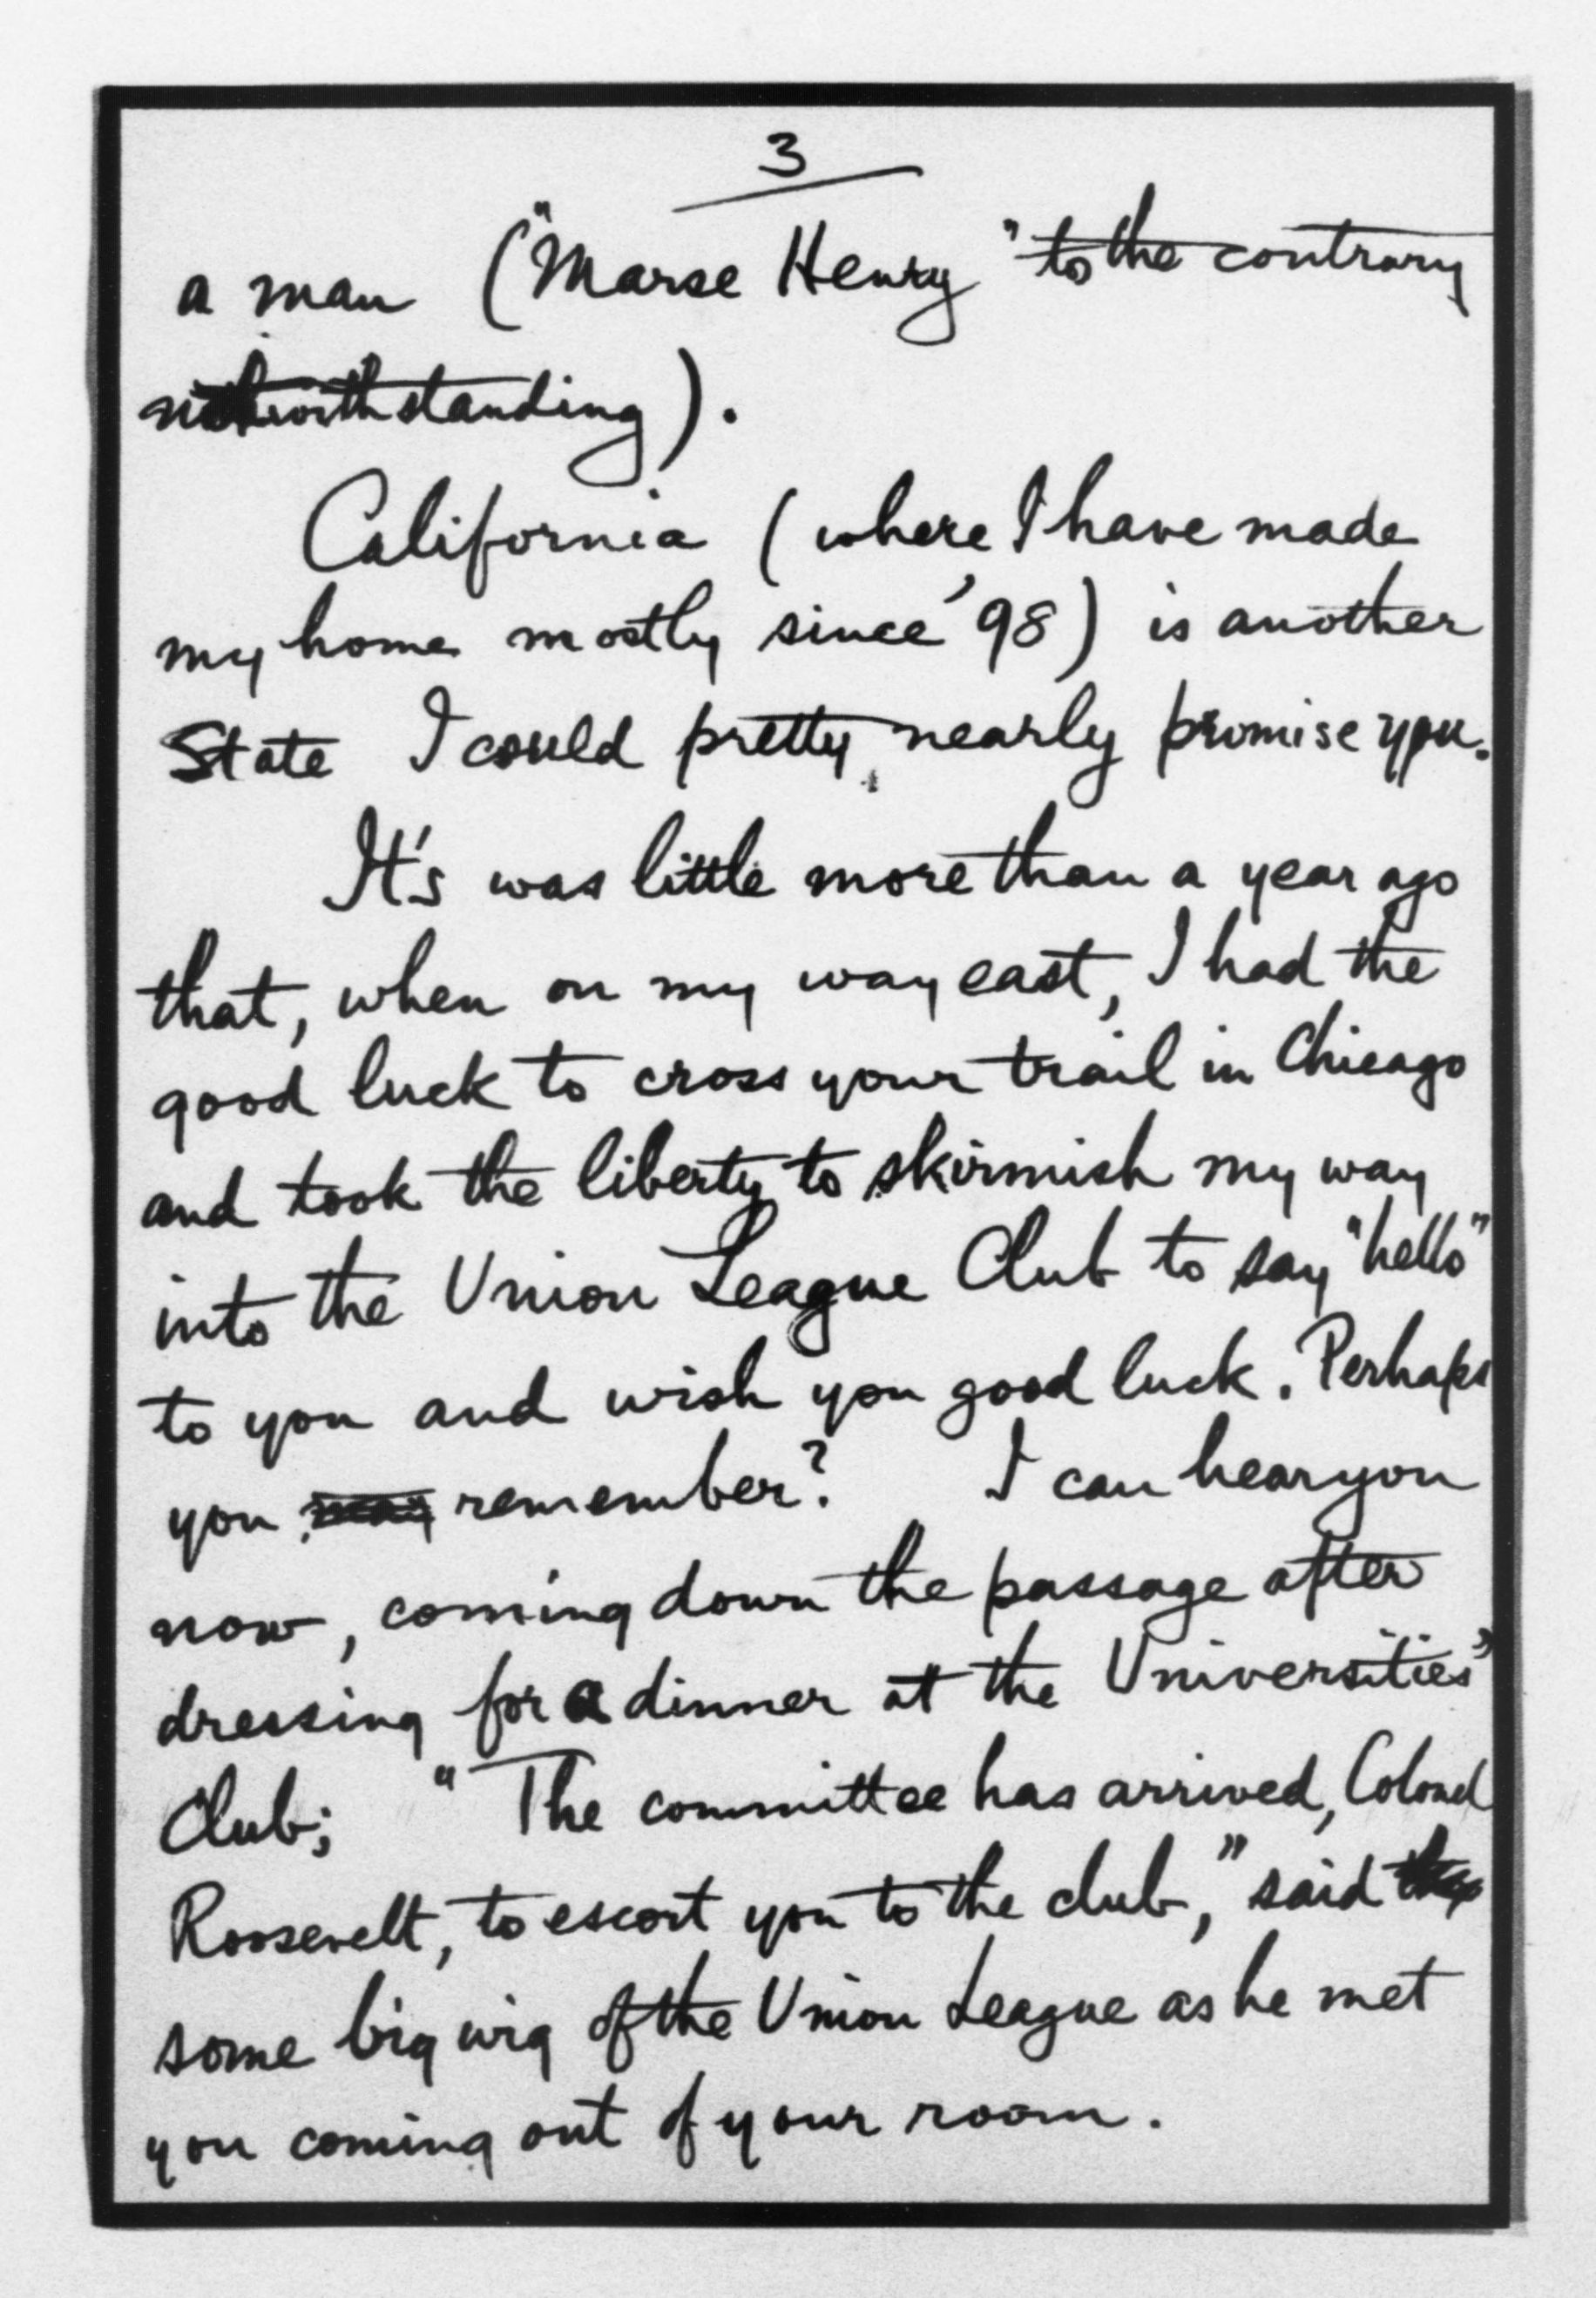 3
a man ("Marse Henry" to the contrary
notwithstanding).
California (where I have made
my home mostly since '98) is another
State I could pretty nearly promise you.
It's was little more than a year ago
that, when on my way east, I had the
good luck to cross your trail in Chicago
and took the liberty to skirmish my way
into the Union League Club to say "hello"
to you and wish you good luck. Perhaps
you may remember? I can hear you
now, coming down the passage after
dressing for a dinner at the Universities'
Club; "The committee has arrived, Colonel
Roosevelt, to escort you to the club," said the
some big wig of the Union League as he met
you coming out of your room.